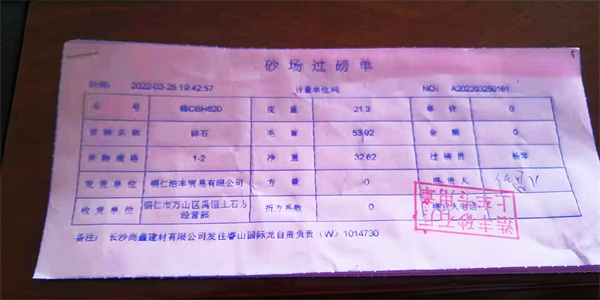 砂场过磅单
时间: 2022-03-25 19:42:57 计量单位:吨 NO: A202203250161
车 号 CBH620 皮 重 21.3 单 价 0
货物名称 碎石 毛 重 53.92 金 额 0
货物规格 1-2 净 重 32.62 过磅员
发货单位 铜仁浩丰贸易有限公司 方 量 0 提货人
收货单位 铜仁市万山区禹恒土石方经营部 折方系数 0
备注: 长沙尚鑫建材有限公司发往睿山国际龙自贵负责(W)1014730